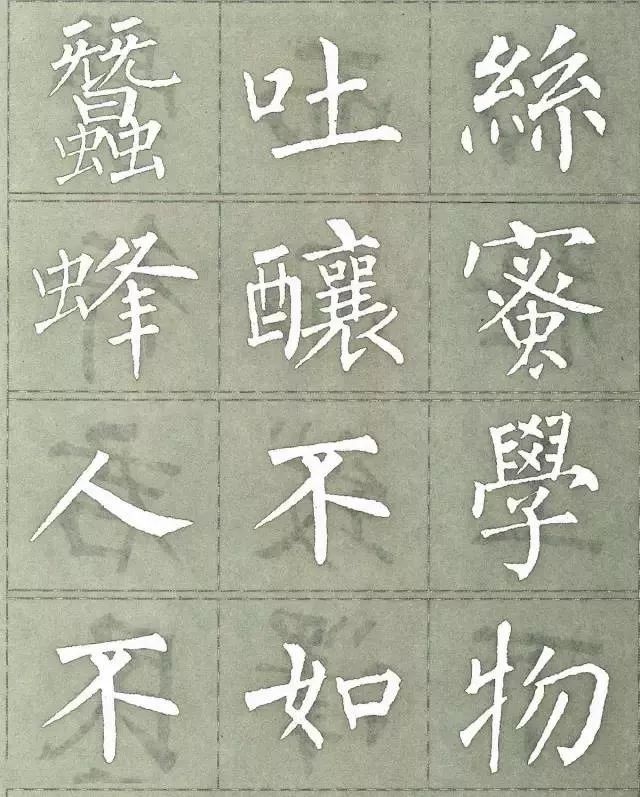 蠶吐絲
蜂釀蜜
人不學
不如物